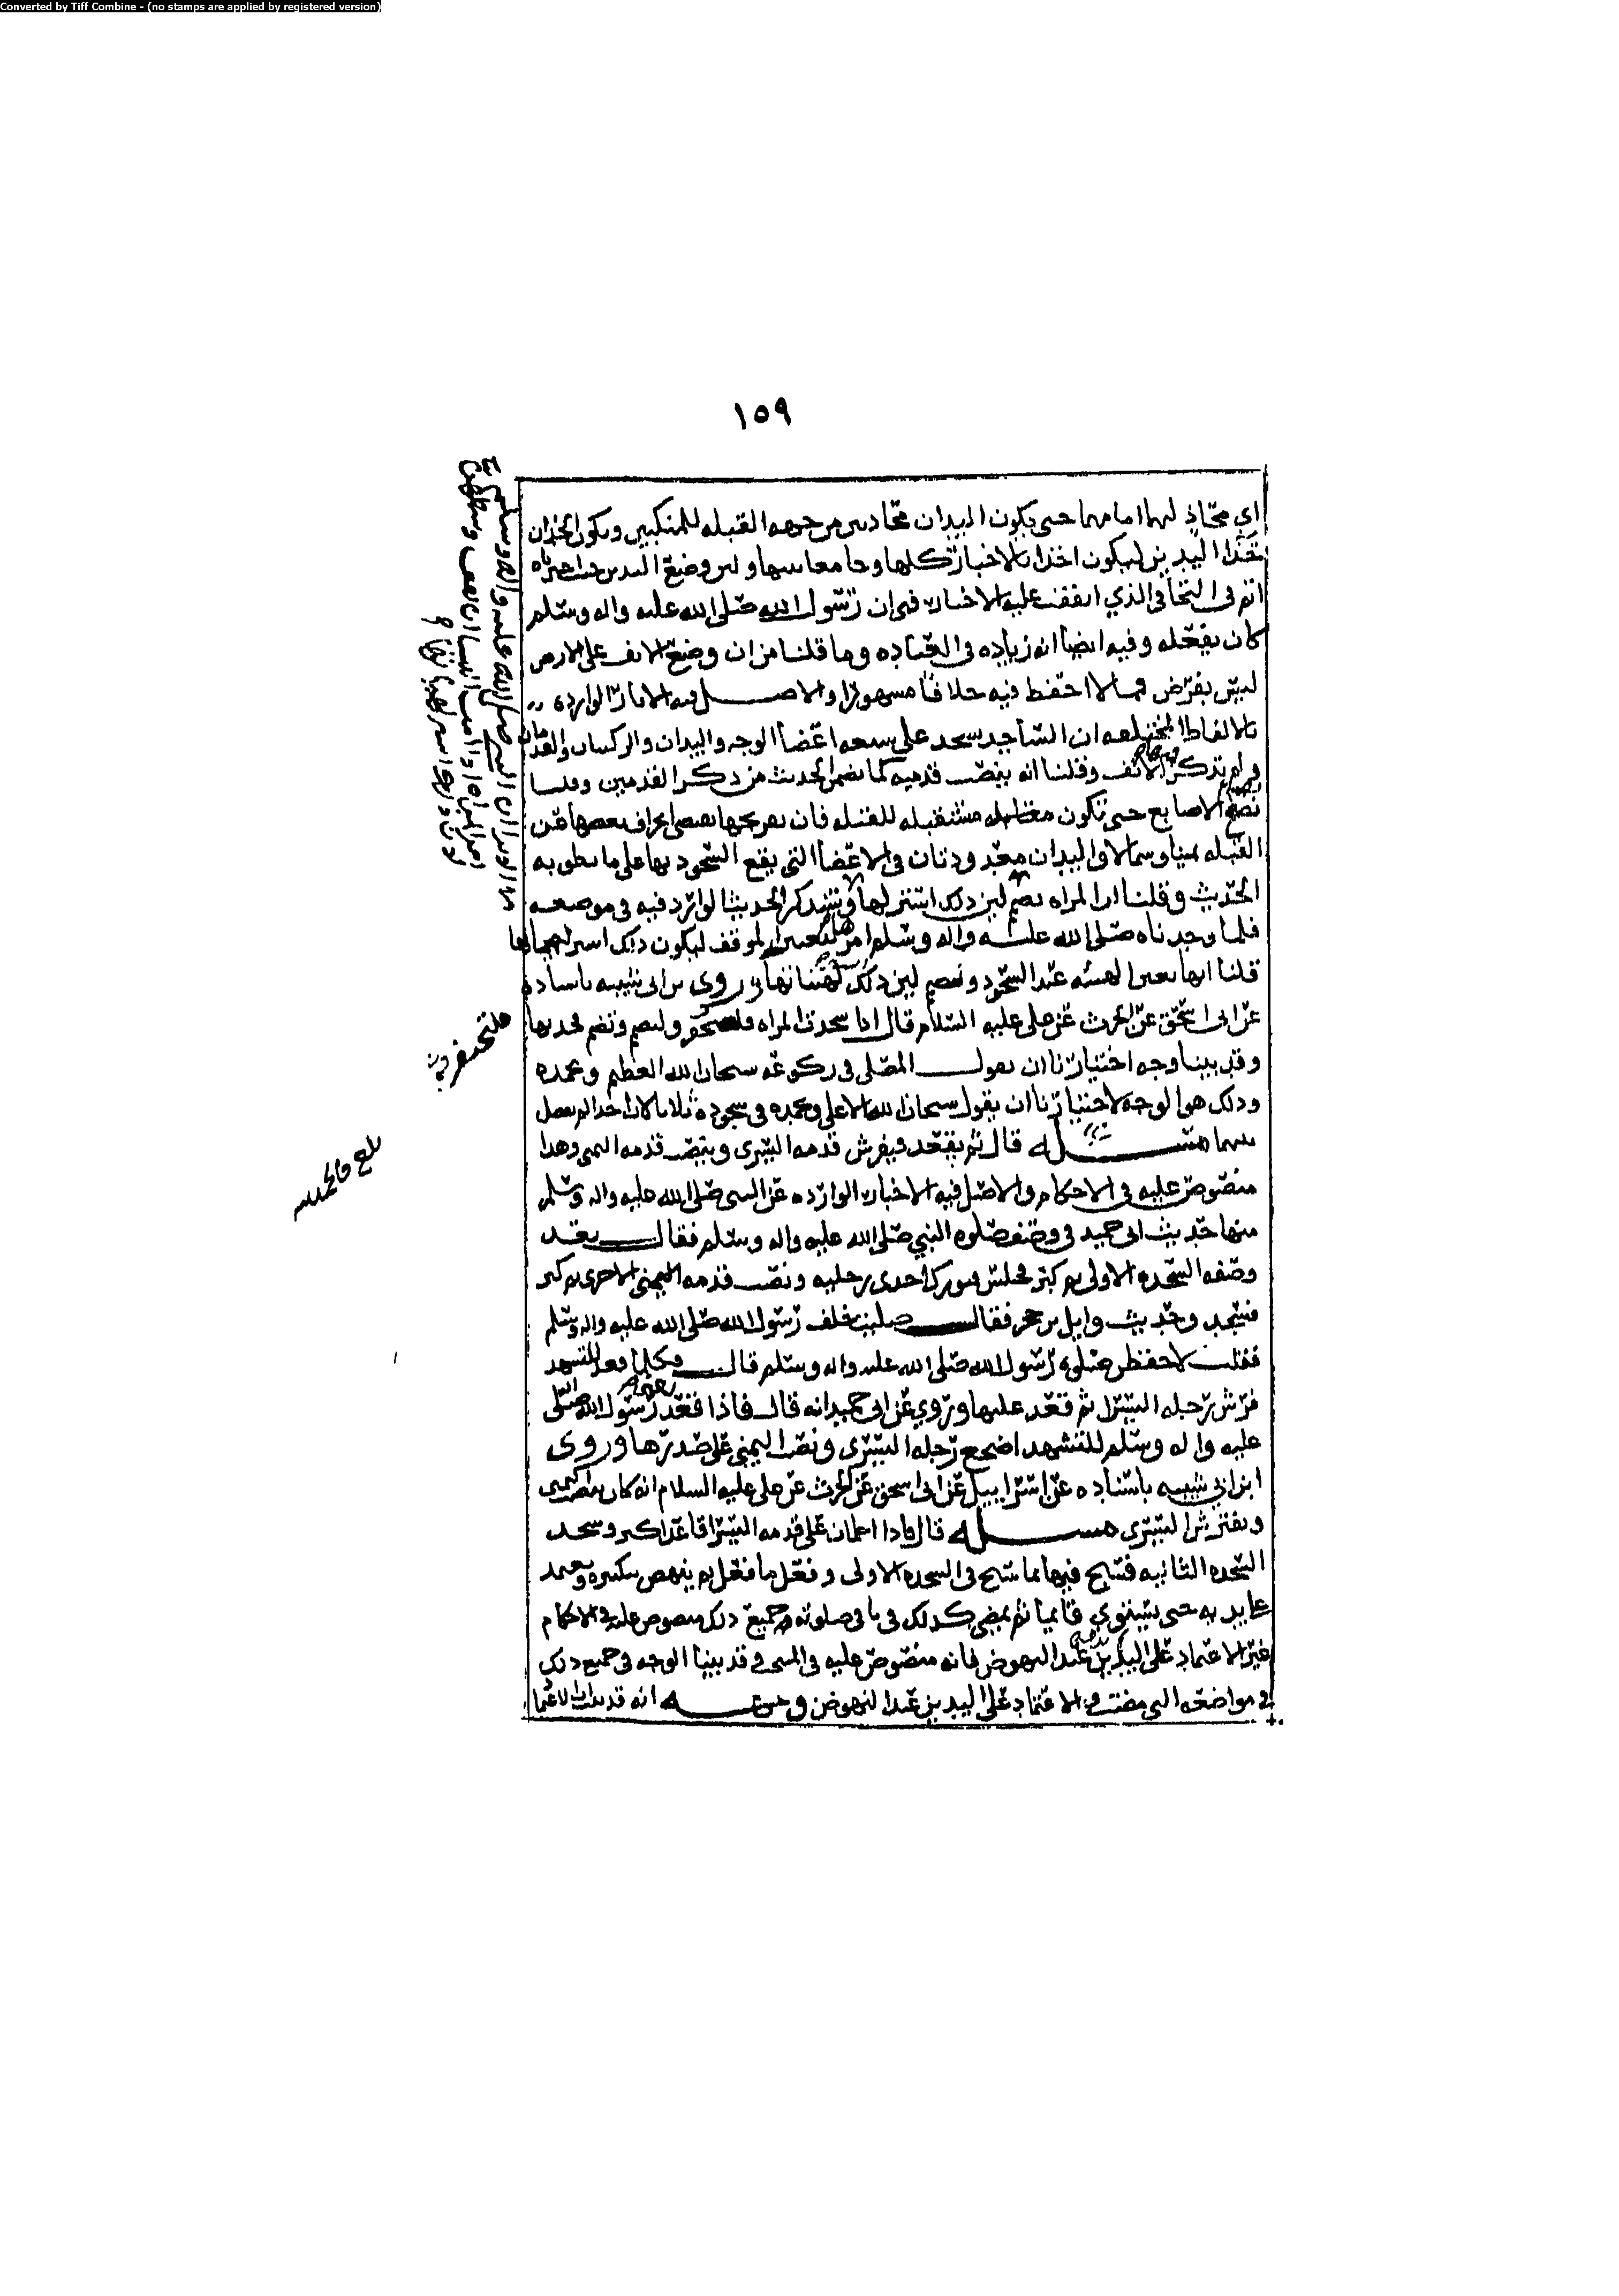 Converted by Tiff Combine - (no stamps are applied by registered version)
١٥٩
اي محاذ لهما امامهما حتى يكون اليدان محاذيتين من جهه القبله للمنكبين ويكون الخدان
حذا اليدين ليكون اخذا بالاخبار كلها وجامعا بينها ولان وضع اليدين حيث اخترناه
اتم في التجافي الذي اتفقت عليه الاخبار في ان رسول الله صلى الله عليه واله وسلم
كان يفعله وفيه ايضا انه زياده في العباده وما قلنا من ان وضع الانف على الارض
ليس بفرض فمما لا احفظ فيه خلافا مشهورا والاصل فيه الاثار الوارده
بالالفاظ المختلفه ان الساجد يسجد على سبعه اعضا الوجه واليدان والركبتان والقدمان
ولم يذكر الانف وقلنا انه ينصب قدميه لما تضمن الحديث من ذكر القدمين وقلنا
نضم الاصابع حتى تكون مستقبله للقبله فان تفريجها يقتضي انحراف بعضها عن
القبله يمينا وشمالا واليدان معدودتان في الاعضا التي يقع السجود بها على ما نطق به
الحديث وقلنا ان المراه تضم لان ذلك استر لها وسنذكر الحديث الوارد فيه في موضعه
فلما وجدناه صلى الله عليه واله وسلم امر الموقف ليكون ذلك استر لهيئاتها
قلنا انها تغير الهيئه عند السجود وتضم لان ذلك روى بن ابي شيبه باسناده
عن ابي اسحق عن الحرث عن علي عليه السلام قال اذا سجدت المراه ولتضم وتضم فخذيها
وقد بينا وجه اختيارنا ان يقول المصلي في ركوعه سبحان الله العظيم وبحمده
وذلك هو الوجه لاختيارنا ان يقول سبحان الله الاعلى وبحمده في سجوده ثلاثا لان احدا لم يفصل
بينهما مسئله قال ثم يقعد ويفرش قدمه اليسرى وينصب قدمه اليمنى وهذا
منصوص عليه في الاحكام والاصل فيه الاخبار الوارده عن النبي صلى الله عليه واله وسلم
منها حديث ابي حميد في وصف صلوه النبي صلى الله عليه واله وسلم فقال بعد
وصفه السجده الاولى ثم كبر فجلس فتورك احدى رجليه ونصب قدمه الاخرى ثم كبر
فسجد وحديث وايل بن حجر فقال صليت خلف رسول الله صلى الله عليه واله وسلم
فقلت لاحفظن صلوه رسول الله صلى الله عليه واله وسلم قال فلما قعد للتشهد
فرش رجله اليسرى ثم قعد عليها وروي عن ابي حميد انه قال فاذا قعد رسول الله صلى
عليه واله وسلم للتشهد اضجع رجله اليسرى ونصب اليمنى على صدرها وروى
ابن ابي شيبه باسناده عن اسراييل عن ابي اسحق عن الحرث عن علي عليه السلام انه كان ينصب اليمنى
ويفترش اليسرى مسئله قال فاذا اطمان على قدمه اليسرى قاعدا كبر وسجد
السجده الثانيه فسبح فيها بما سبح في السجده الاولى وفعل ما فعل ثم ينهض بتكبيره ويعتمد
على يديه حتى يستوي قايما ثم يمضي كذلك في باقي صلوته وجميع ذلك منصوص عليه في الاحكام
غير الاعتماد على اليدين عند النهوض فانه منصوص عليه في المنتخب وقد بينا الوجه في جميع ذلك
في مواضعه التي مضت الاعتماد على اليدين عند النهوض انه قد